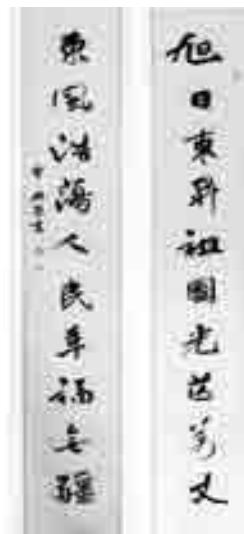 旭日東昇祖國光芒萬丈
東風浩蕩人民幸福無疆